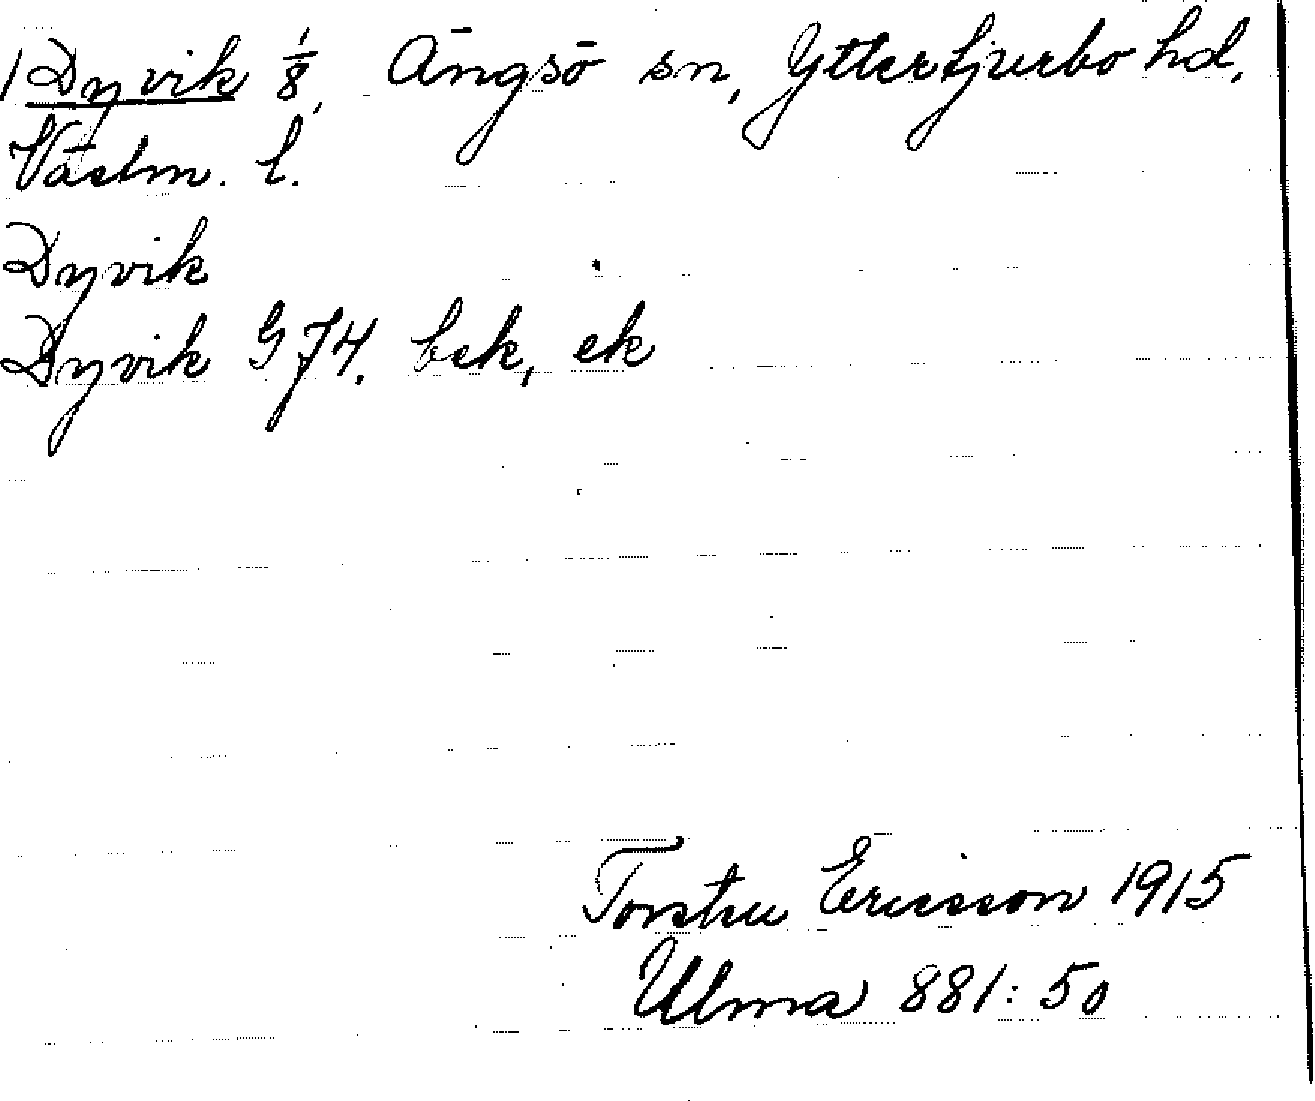 1 Dyvik 1/8, Ängsö sn, Yttertjurbo hd,
Västm. l.
Dyvik
Dyvik G J4. bek, ek
Torsten Ericsson 1915
Ulma 881:50